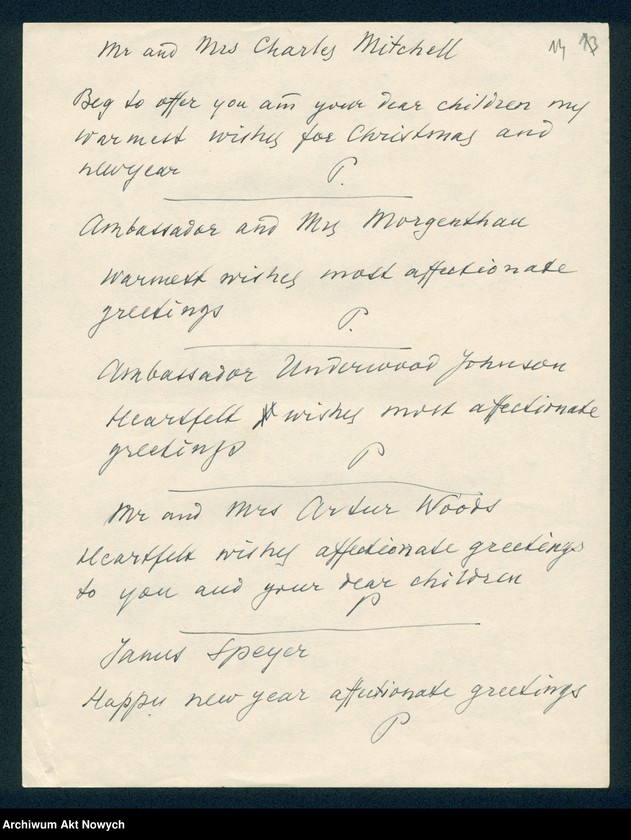 Mr and Mrs Charles Mitchell
Beg to offer you and your dear children my
warmest wishes for Christmas and
newyear P.
Ambassador and Mrs Morgenthau
Warmest wishes most affectionate
greetings P.
Ambassador Underwood Johnson
Heartfelt wishes most affectionate
greetings P
Mr and Mrs Artur Woods
Heartfelt wishes affectionate greetings
to you and your dear children
P
James Speyer
Happy new year affectionate greetings
P
Archiwum Akt Nowych